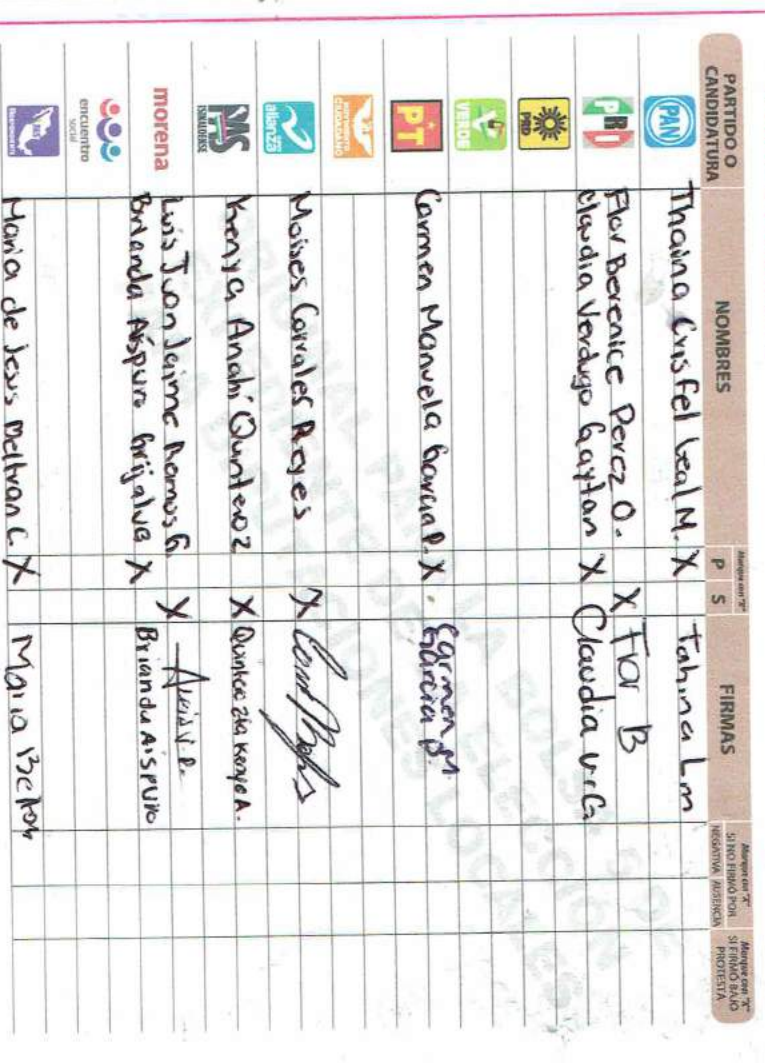 PARTIDO O
CANDIDATURA
NOMBRES
Marque con "X"
P S
FIRMAS
Marque con "X"
SI NO FIRMÓ POR
NEGATIVA AUSENCIA
Marque con "X"
SI FIRMÓ BAJO
PROTESTA
PAN Thaina Crisfel Leal M. X Tahina L m
PRI Flor Berenice Perez O. X Flor B
Claudia Verdugo Gaytan X Claudia V.G
PRD
VERDE
PT Carmen Manuela Garcia P. X Carmen M.
Garcia P.
MOVIMIENTO
CIUDADANO
alianza Moises Corrales Reyes X
PAS
SINALOENSE Kenya Anahi Quintero Z X Quintero Zta Kenya A.
morena Luis Juan Jaime Ramos G. X
Brianda Aispuro Grijalva X Brianda Aispuro
encuentro
social
Maria de Jesus Beltran C. X Maria Beltran
ORIGINAL PARA LA BOLSA DE
EXPEDIENTE DE LA ELECCIÓN
PARA DIPUTACIONES LOCALES